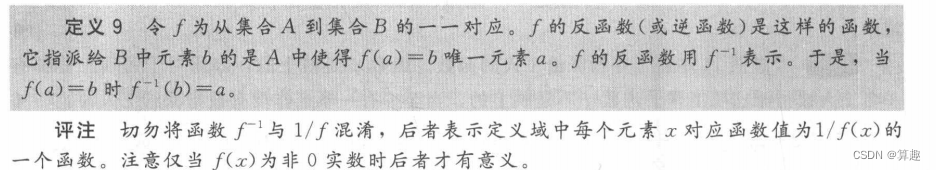 定义9 令 f 为从集合 A 到集合 B 的一一对应。f 的反函数(或逆函数)是这样的函数，
它指派给 B 中元素 b 的是 A 中使得 f(a)=b 唯一元素 a。f 的反函数用 f⁻¹ 表示。于是，当
f(a)=b 时 f⁻¹(b)=a。
评注 切勿将函数 f⁻¹ 与 1/f 混淆，后者表示定义域中每个元素 x 对应函数值为1/f(x)的
一个函数。注意仅当 f(x)为非 0 实数时后者才有意义。
CSDN @算趣